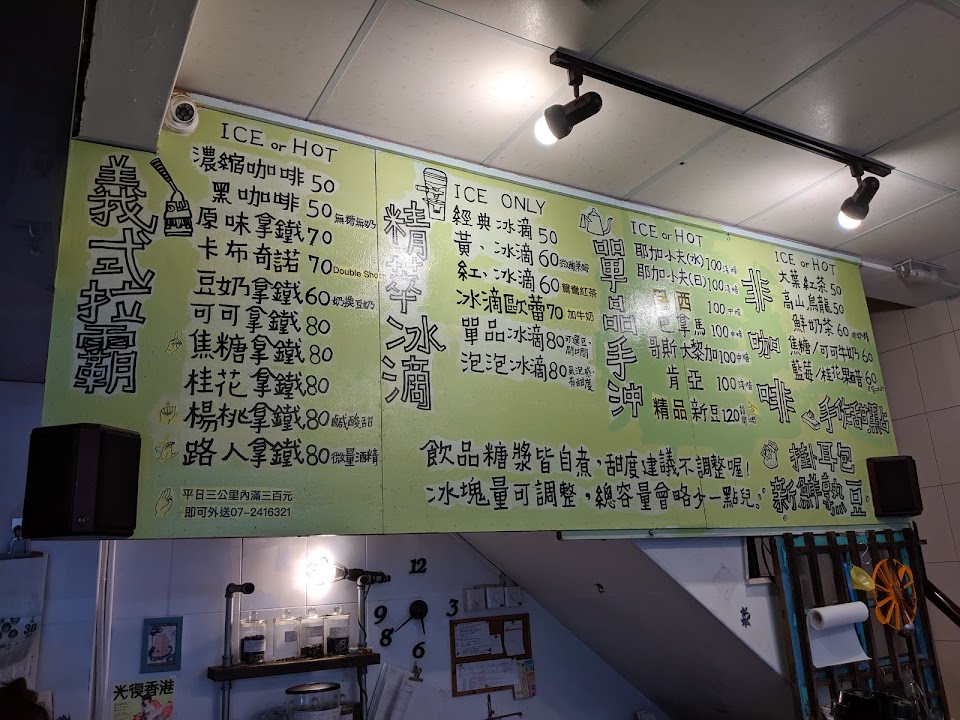 義式拉霸
ICE or HOT
濃縮咖啡 50
黑咖啡 50 無糖無奶
原味拿鐵 70
卡布奇諾 70 Double Shot
豆奶拿鐵 60 奶換豆奶
可可拿鐵 80
焦糖拿鐵 80
桂花拿鐵 80
楊桃拿鐵 80 鹹酸甜
路人拿鐵 80 微量酒精
平日三公里內滿三百元
即可外送07-2416321
精萃冰滴
ICE ONLY
經典冰滴 50
黃、冰滴 60
紅、冰滴 60 鴛鴦紅茶
冰滴歐蕾 70 加牛奶
單品冰滴 80
泡泡冰滴 80
單品手沖
ICE or HOT
耶加小夫(水) 100 淺焙
耶加小夫(日) 100 淺焙
西 100 中焙
拿馬 100 中焙
哥斯大黎加 100 中焙
肯亞 100 淺焙
精品新豆 120
非咖啡
ICE or HOT
大葉紅茶 50
高山烏龍 50
鮮奶茶 60
焦糖/可可牛奶 60
藍莓/桂花果醋 60
手作甜點
掛耳包
新鮮熟豆
飲品糖漿皆自煮,甜度建議不調整喔!
冰塊量可調整,總容量會略少一點兒。
12
3
6
8
9
光復香港